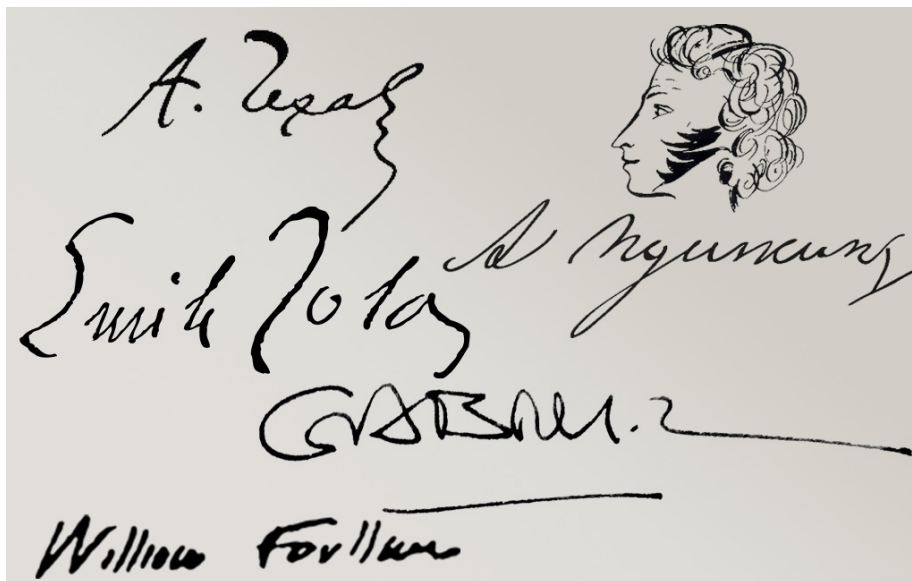 А. Чехов
А Пушкинъ
Emile Zola
GABRIEL
William Faulkner